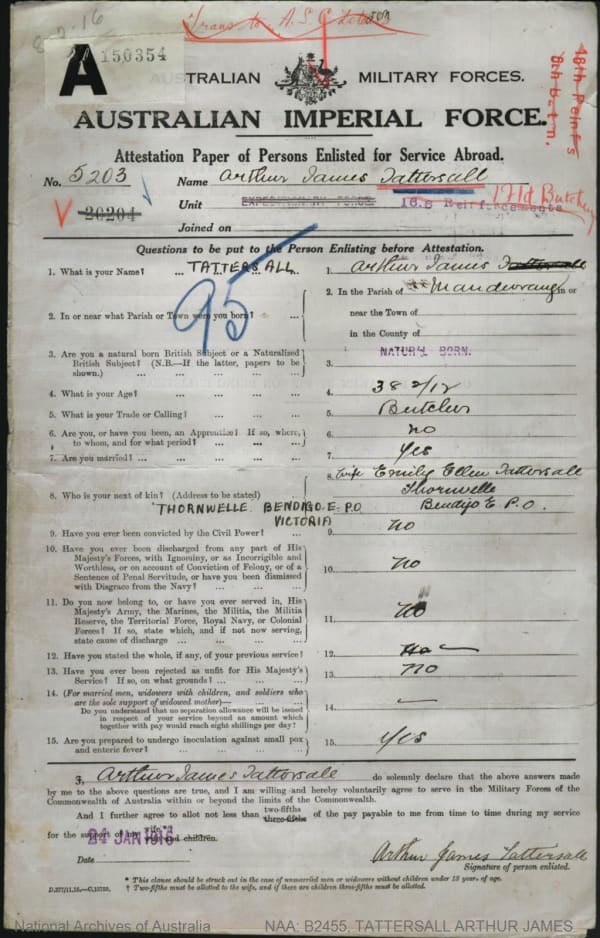 8.2.16
Trans to A.S.C
A 150354
AUSTRALIAN MILITARY FORCES.
AUSTRALIAN IMPERIAL FORCE.
18th Reinfts
8th Batn.
Attestation Paper of Persons Enlisted for Service Abroad.
No. 5203 Name Arthur James Tattersall
20204 Unit EXPEDITIONARY FORCE 16.8 Reinforcements
Fld Butchery
Joined on
Questions to be put to the Person Enlisting before Attestation.
1. What is your Name? ... TATTERSALL 1. Arthur James Tattersall
95
2. In or near what Parish or Town were you born? ... 2. In the Parish of Mandurang in or
near the Town of
in the County of
3. Are you a natural born British Subject or a Naturalised
British Subject? (N.B.—If the latter, papers to be
shown.) 3. NATURAL BORN.
4. What is your Age? ... 4. 38 2/12
5. What is your Trade or Calling? ... 5. Butcher
6. Are you, or have you been, an Apprentice? If so, where,
to whom, and for what period? ... 6. No
7. Are you married? ... 7. Yes
8. Who is your next of kin? (Address to be stated) 8. Wife Emily Ellen Tattersall
Thornwelle
Bendigo E P.O.
THORNWELLE. BENDIGO. E. P.O
VICTORIA
9. Have you ever been convicted by the Civil Power? ... 9. No
10. Have you ever been discharged from any part of His
Majesty's Forces, with Ignominy, or as Incorrigible and
Worthless, or on account of Conviction of Felony, or of a
Sentence of Penal Servitude, or have you been dismissed
with Disgrace from the Navy? ... 10. No
11. Do you now belong to, or have you ever served in, His
Majesty's Army, the Marines, the Militia, the Militia
Reserve, the Territorial Force, Royal Navy, or Colonial
Forces? If so, state which, and if not now serving,
state cause of discharge ... 11. No
12. Have you stated the whole, if any, of your previous service? 12. No
13. Have you ever been rejected as unfit for His Majesty's
Service? If so, on what grounds? ... 13. No
14. (For married men, widowers with children, and soldiers who
are the sole support of widowed mother)—
Do you understand that no separation allowance will be issued
in respect of your service beyond an amount which
together with pay would reach eight shillings per day? 14. —
15. Are you prepared to undergo inoculation against small pox
and enteric fever? 15. Yes
I, Arthur James Tattersall do solemnly declare that the above answers made
by me to the above questions are true, and I am willing and hereby voluntarily agree to serve in the Military Forces of the
Commonwealth of Australia within or beyond the limits of the Commonwealth.
And I further agree to allot not less than two-fifths three-fifths of the pay payable to me from time to time during my service
for the support of my wife and children.
24 JAN 1916
Date
Arthur James Tattersall
Signature of person enlisted.
* This clause should be struck out in the case of unmarried men or widowers without children under 18 years of age.
† Two-fifths must be allotted to the wife, and if there are children three-fifths must be allotted.
D.277/11.15.—C.15738.
National Archives of Australia NAA: B2455, TATTERSALL ARTHUR JAMES